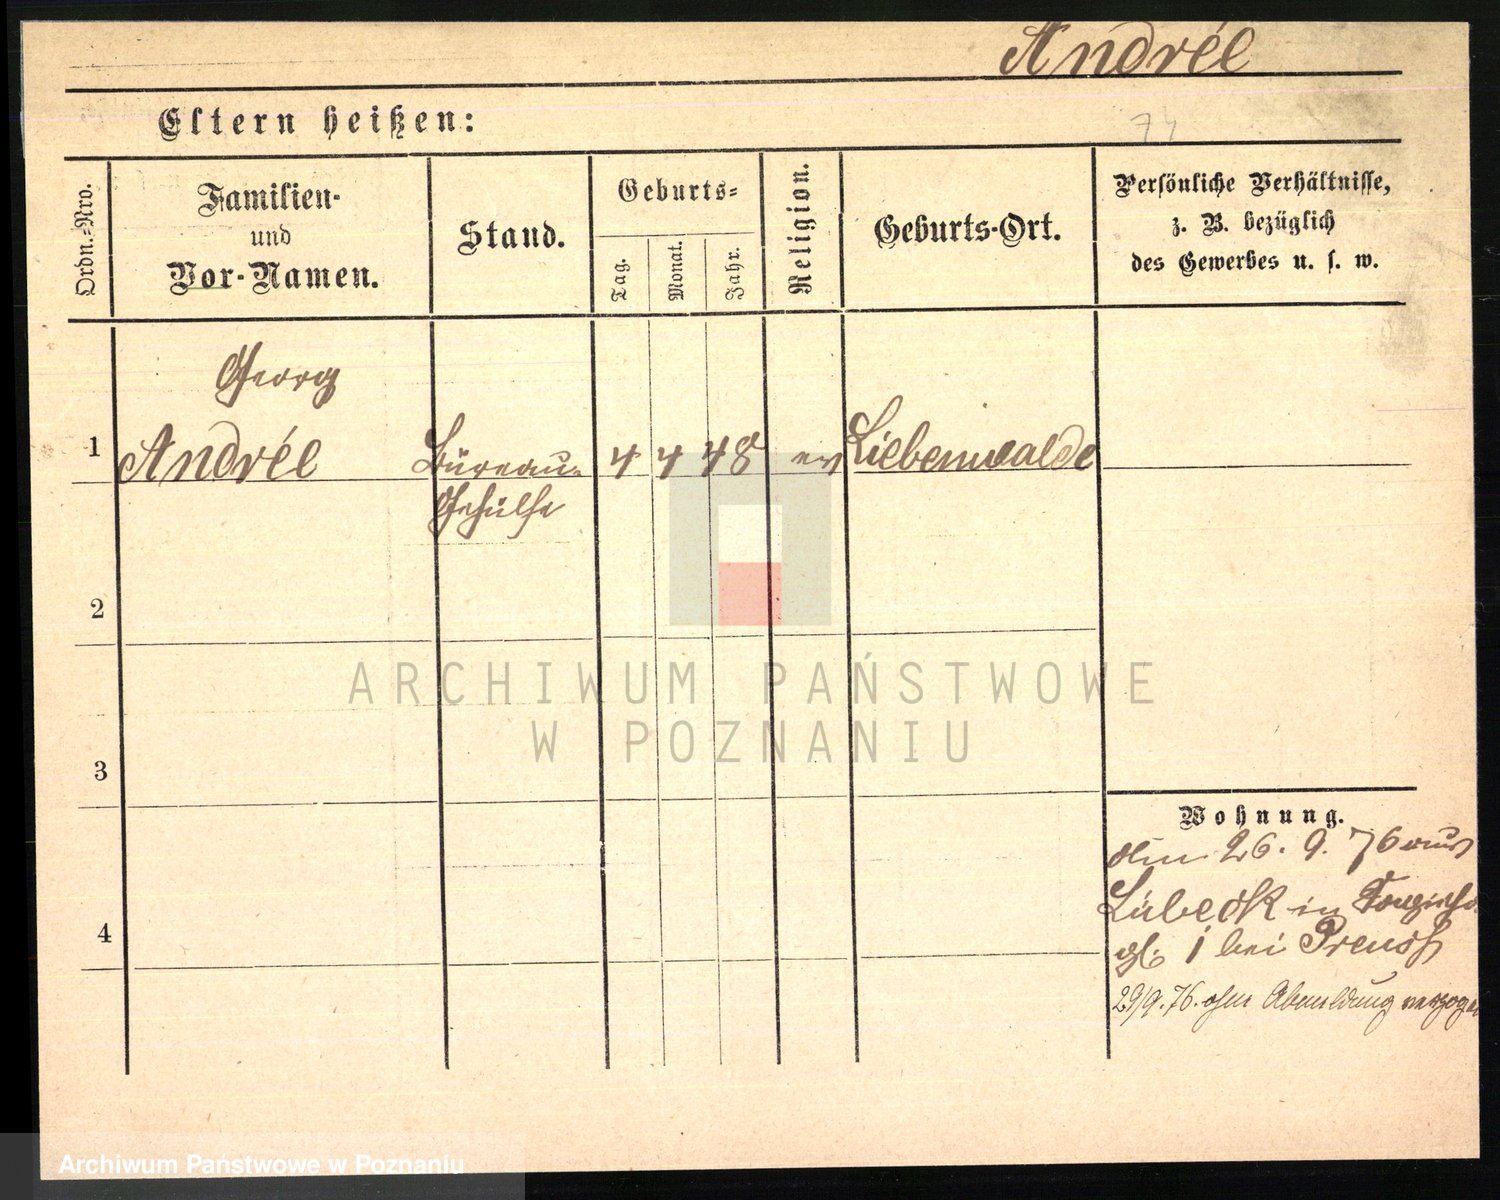 Andréé
74
Eltern heißen:
Ordn.-Nro.
Familien-
und
Vor-Namen.
Stand.
Geburts-
Tag.
Monat.
Jahr.
Religion.
Geburts-Ort.
Persönliche Verhältnisse,
z. B. bezüglich
des Gewerbes u. s. w.
Georg
1 Andréé Büreau- 4 4 48 ev Liebenwalde
Gehülfe
2
3
4
ARCHIWUM PAŃSTWOWE
W POZNANIU
Wohnung.
den 26. 9. 76 aus
Lübeck in
1 bei Preuss
29/9.76. ohne Abmeldung verzogen
Archiwum Państwowe w Poznaniu